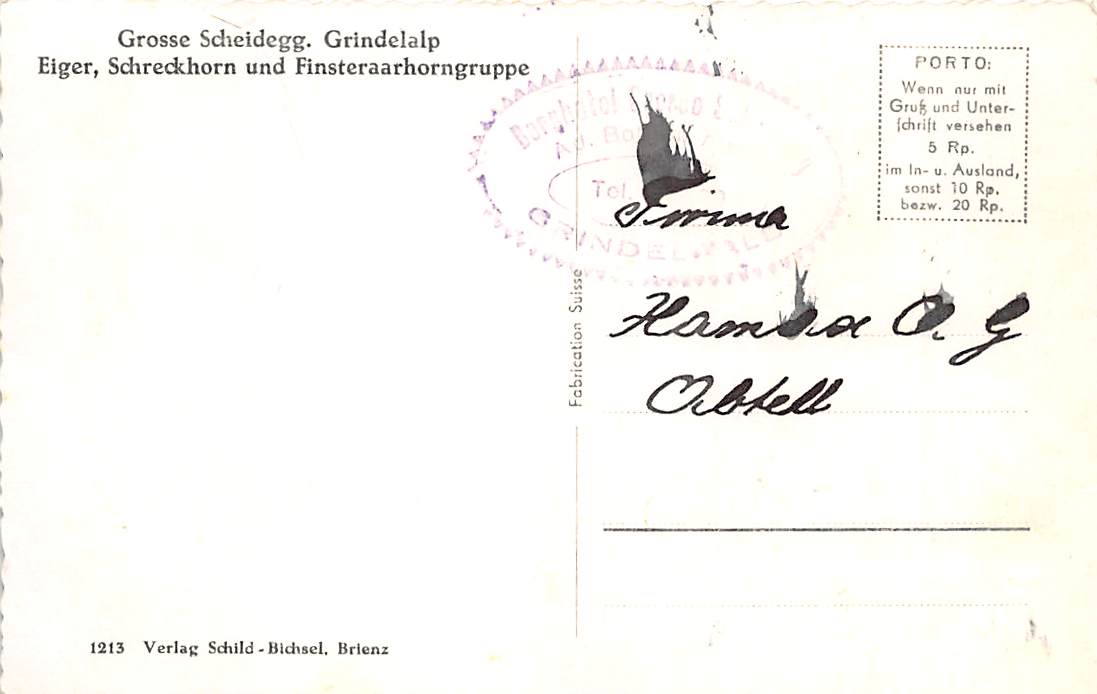 Grosse Scheidegg. Grindelalp
Eiger, Schreckhorn und Finsteraarhorngruppe
PORTO:
Wenn nur mit
Gruß und Unter-
schrift versehen
5 Rp.
im In- u. Ausland,
sonst 10 Rp.
bezw. 20 Rp.
Berghotel Grosse
Ad.
Tel.
GRINDELWALD
Firma
A. G
Fabrication Suisse
1213 Verlag Schild-Bichsel, Brienz